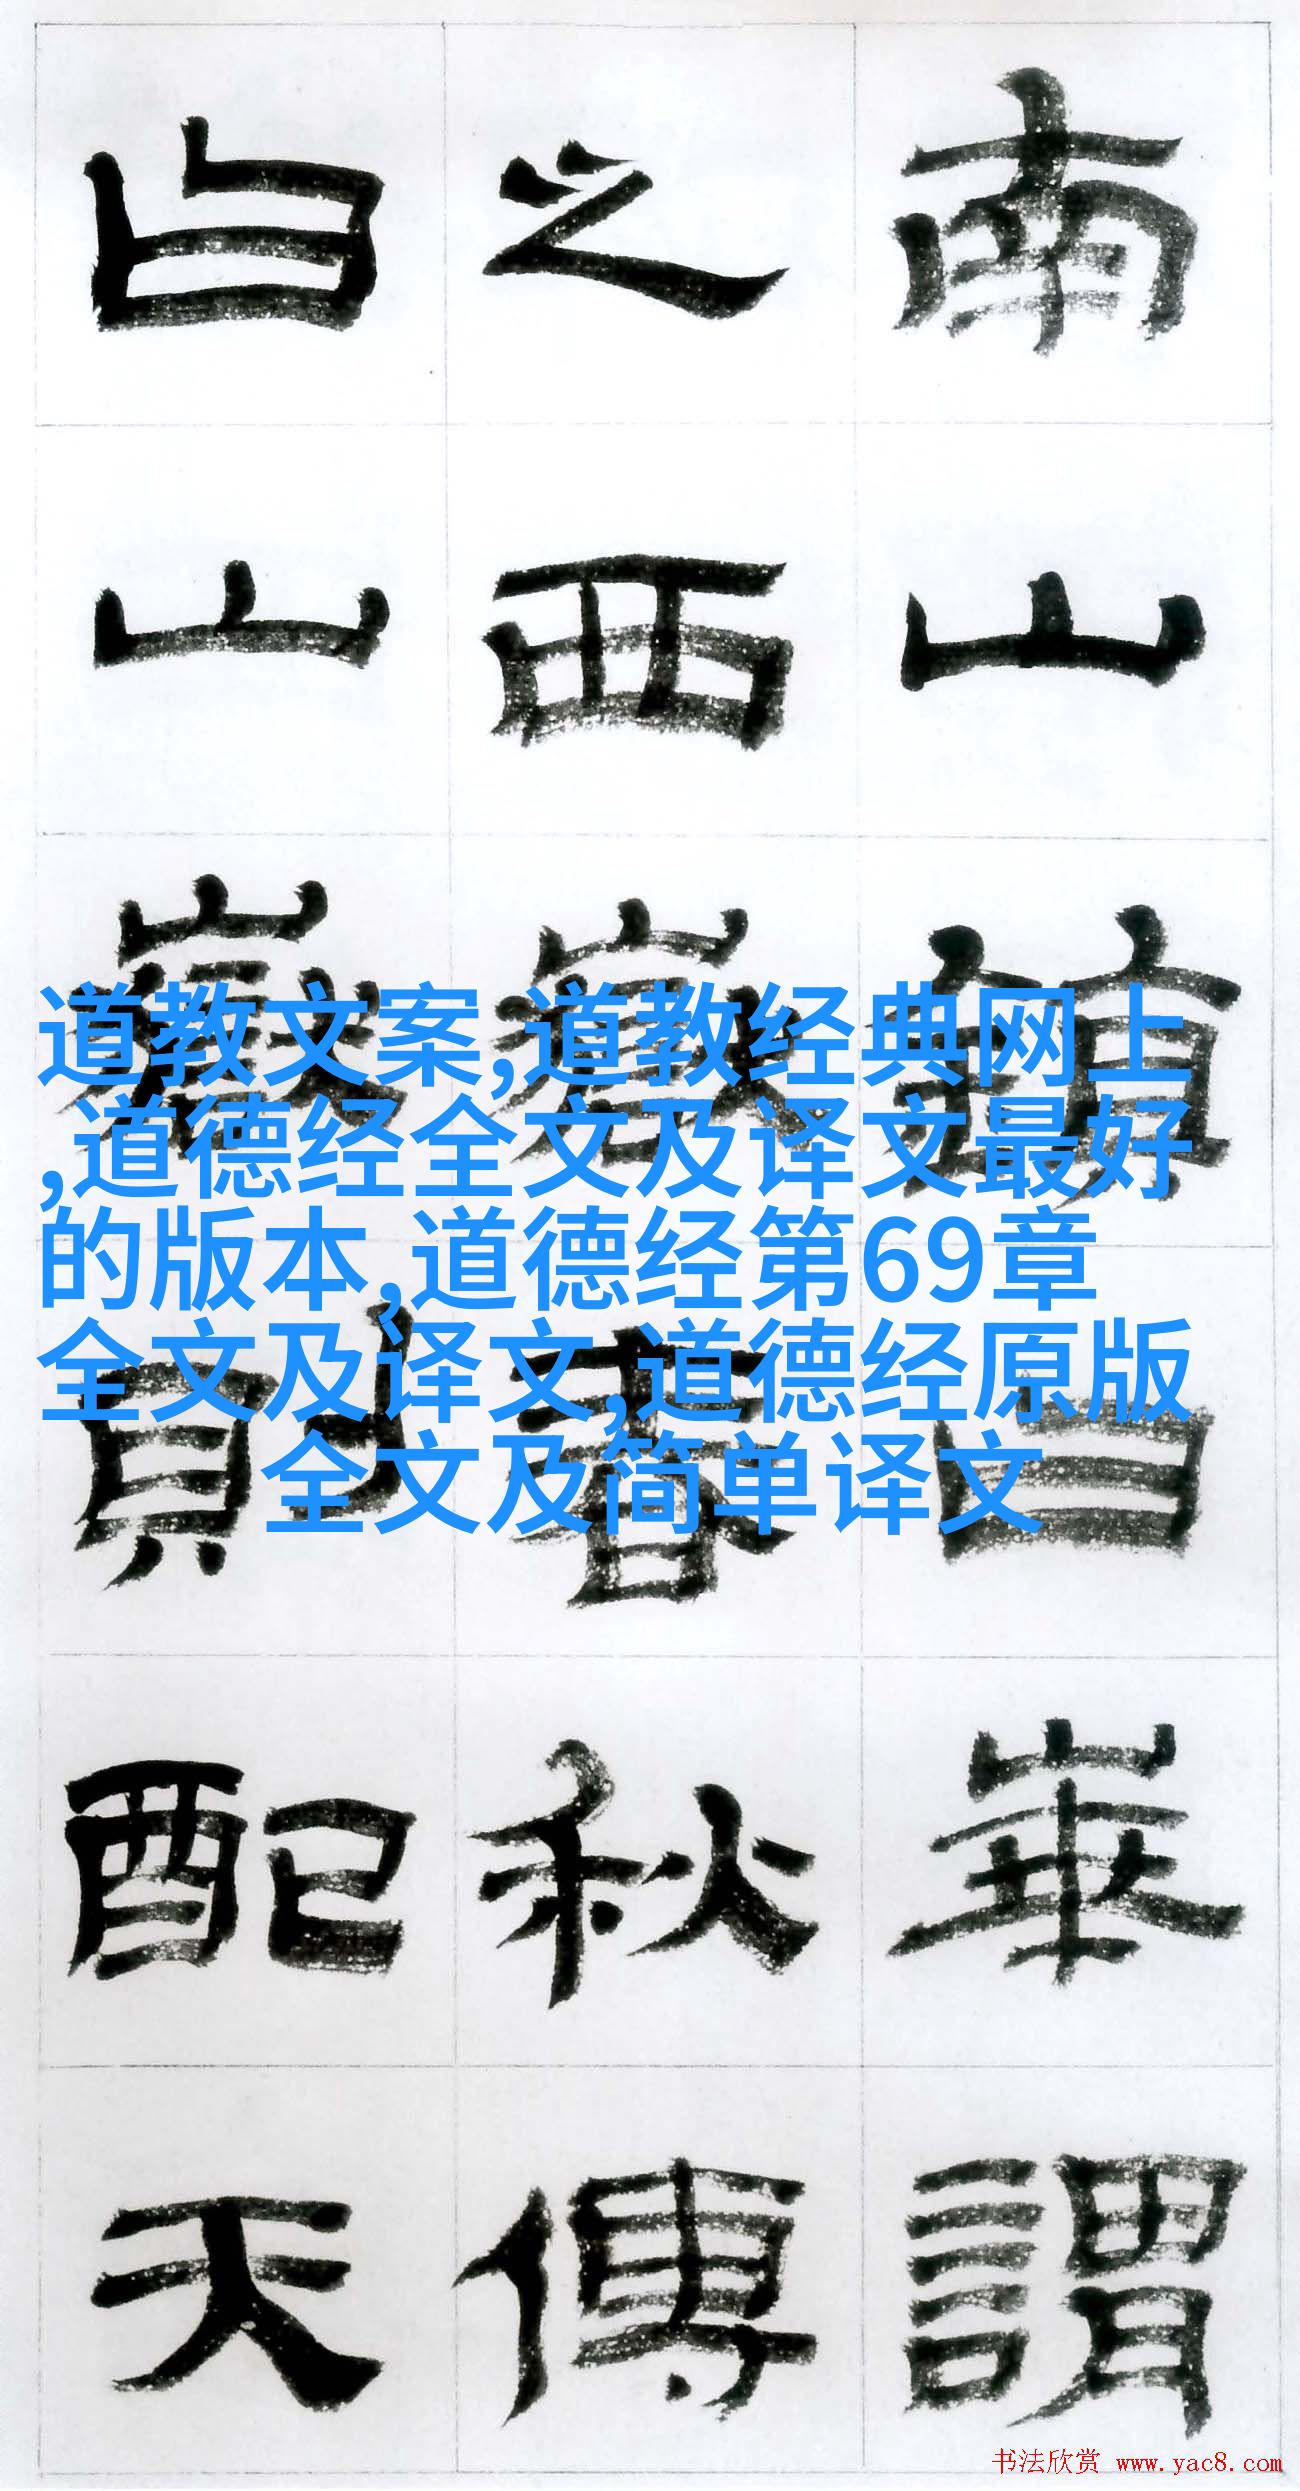 南山鎮曰華謂
之西嶽春秋傳
曰山嶽則配天
道教文案,道教经典网上
,道德经全文及译文最好
的版本,道德经第69章
全文及译文,道德经原版
全文及简单译文
书法欣赏 www.yac8.com